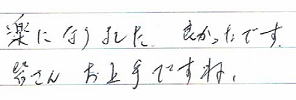 楽になりました. 良かったです.
皆さん お上手ですね.